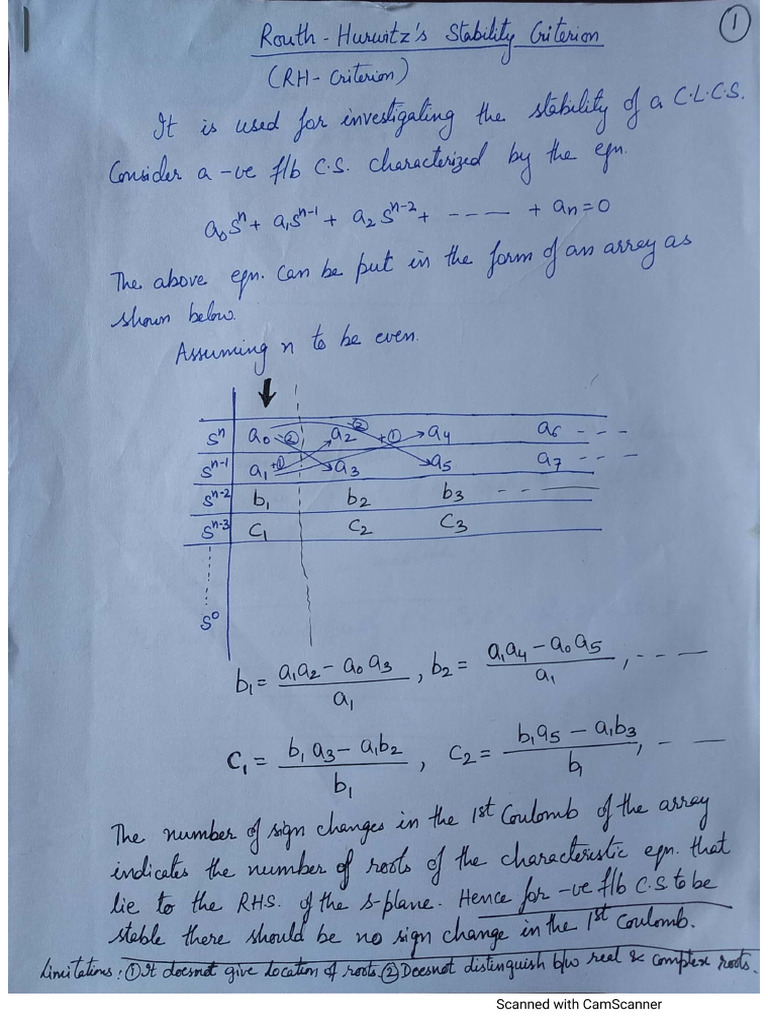 ①
Routh-Hurwitz's Stability Criterion
(RH-Criterion)
It is used for investigating the stability of a C.L.C.S.
Consider a -ve f/b C.S. characterized by the eqn.
a₀sⁿ + a₁sⁿ⁻¹ + a₂sⁿ⁻² + ---- + aₙ = 0
The above eqn. can be put in the form of an array as
shown below.
Assuming n to be even.
sⁿ a₀ -② a₂ -② +① a₄ a₆ ---
sⁿ⁻¹ a₁ +① a₃ a₅ a₇ ---
sⁿ⁻² b₁ b₂ b₃ ----
sⁿ⁻³ c₁ c₂ c₃
s⁰
b₁ = (a₁a₂ - a₀a₃)/a₁, b₂ = (a₁a₄ - a₀a₅)/a₁, ---
c₁ = (b₁a₃ - a₁b₂)/b₁, c₂ = (b₁a₅ - a₁b₃)/b₁, --
The number of sign changes in the 1st Coulomb of the array
indicates the number of roots of the characteristic eqn. that
lie to the RHS. of the s-plane. Hence for -ve f/b C.S. to be
stable there should be no sign change in the 1st Coulomb.
Limitations: ① It doesnot give location of roots. ② Doesnot distinguish b/w real & complex roots.
Scanned with CamScanner